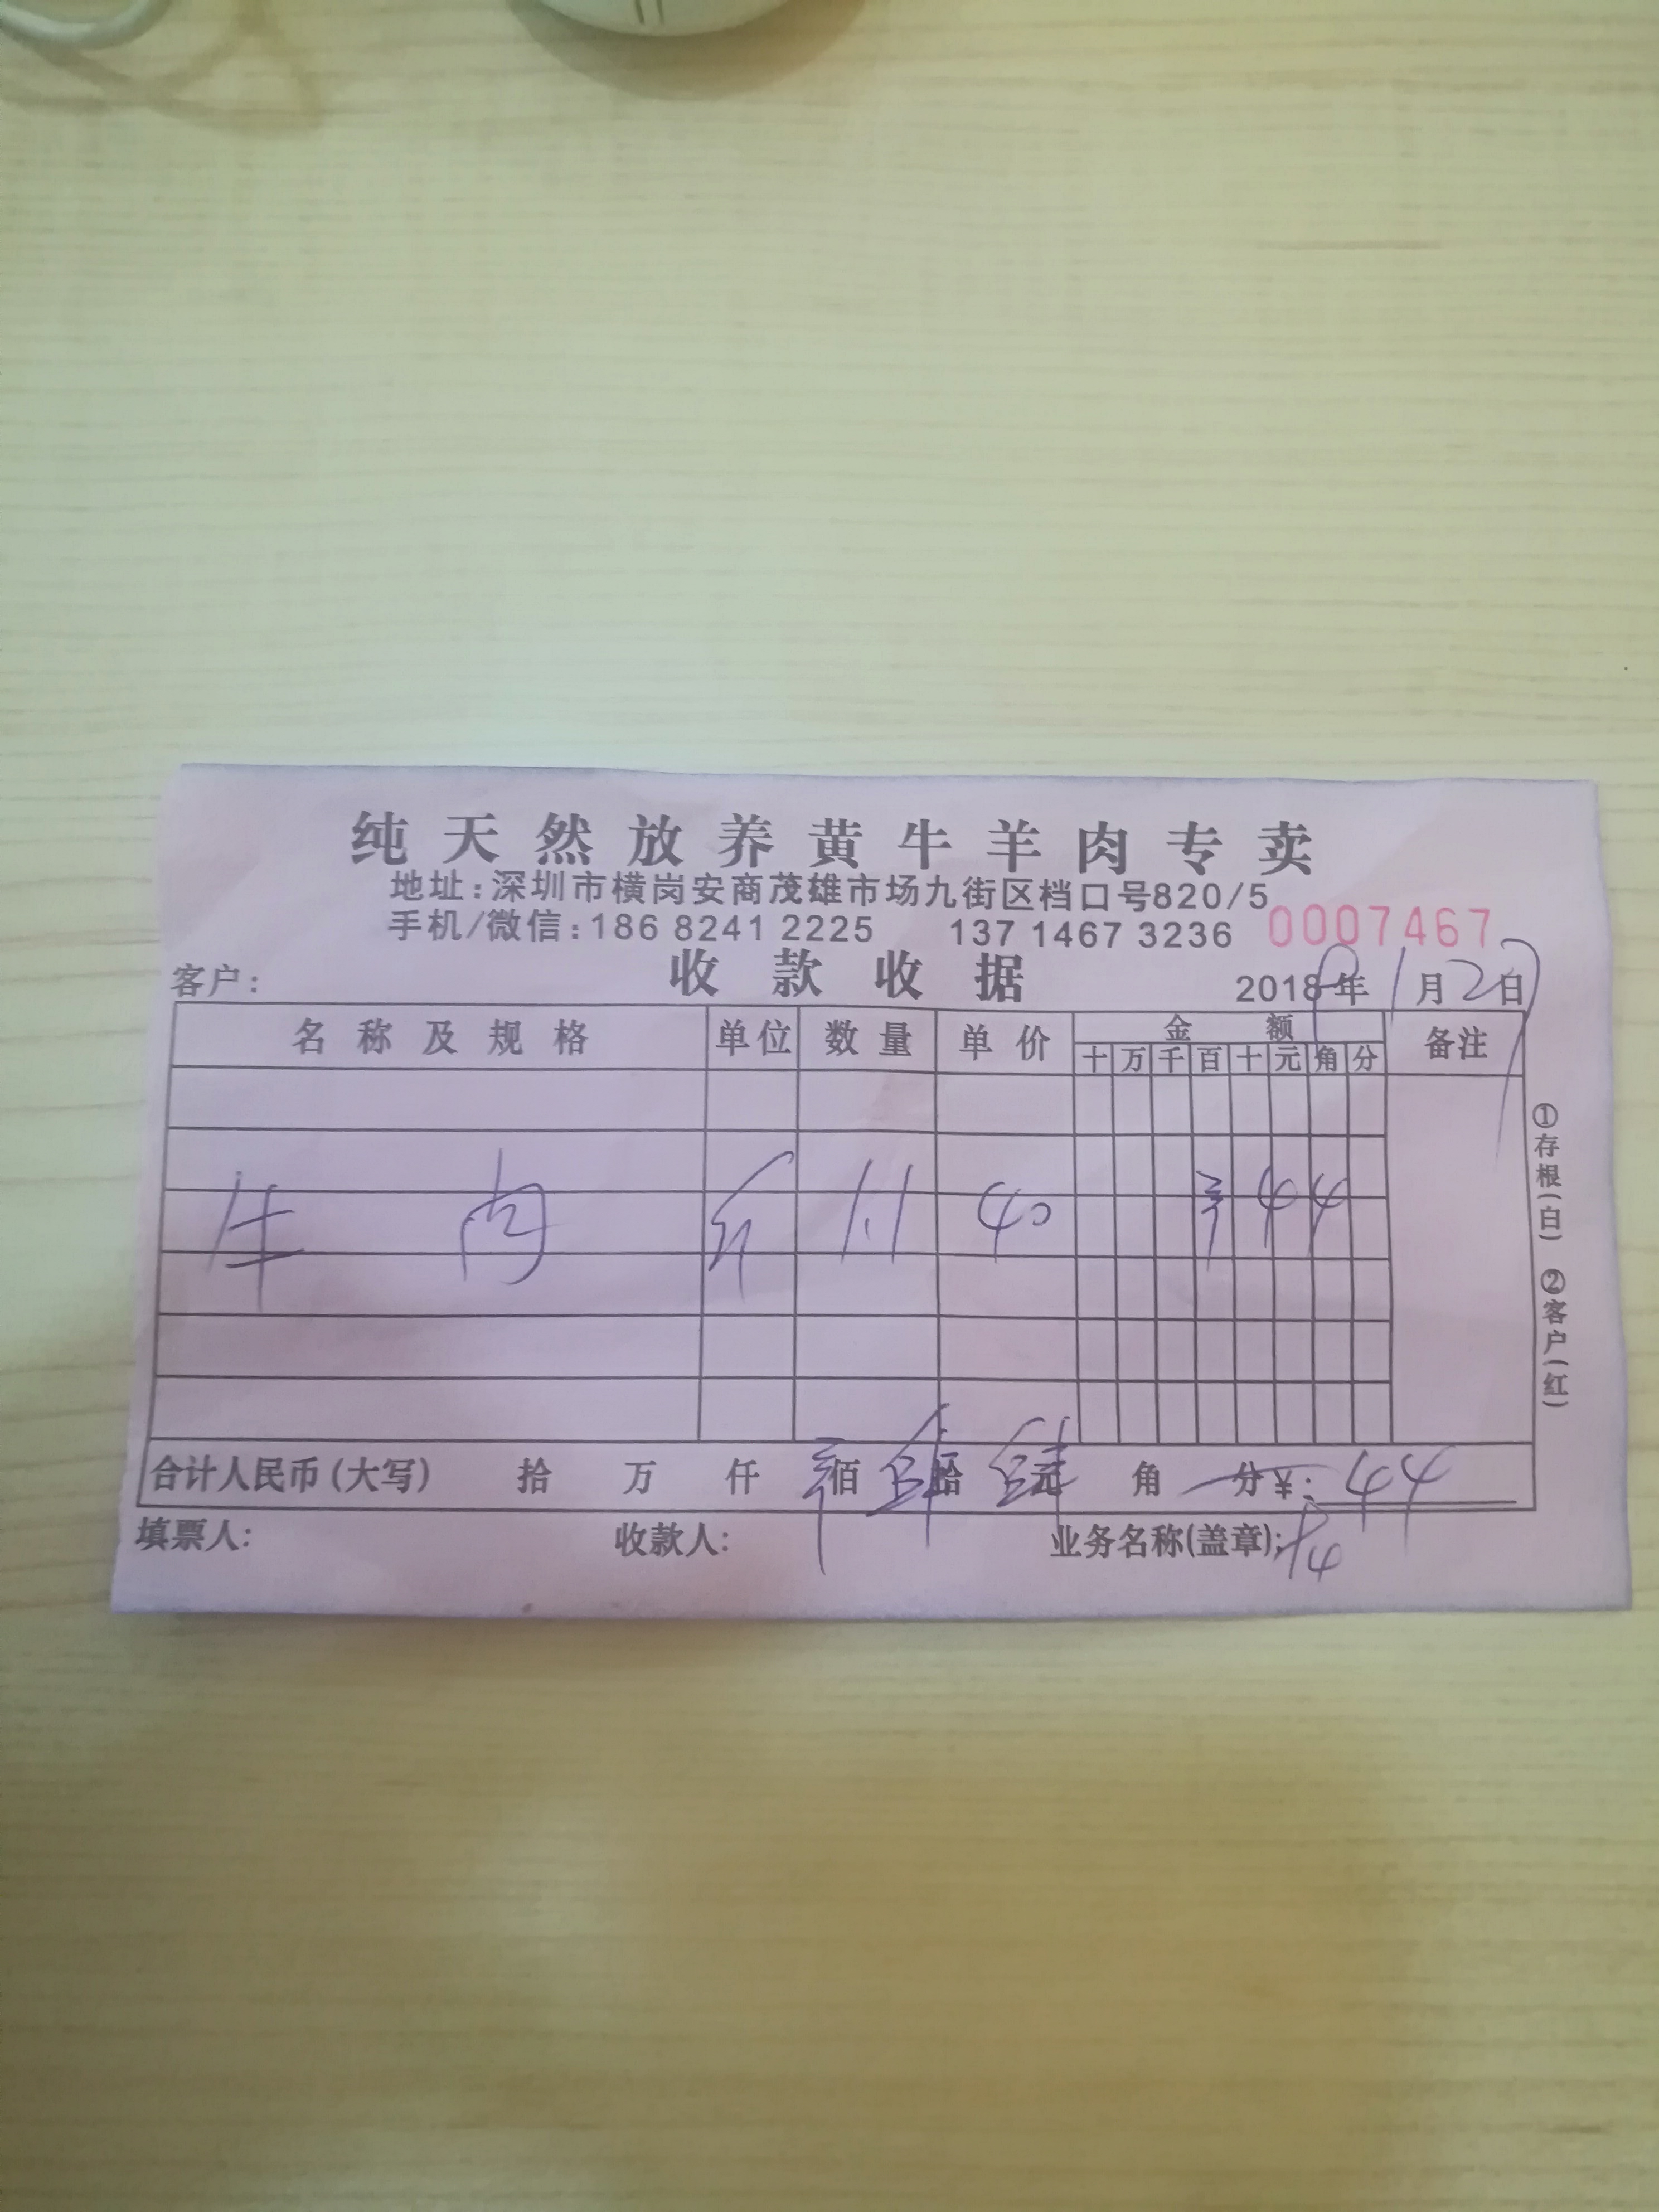 纯天然放养黄牛羊肉专卖
地址:深圳市横岗安商茂雄市场九街区档口号820/5
手机/微信:186 8241 2225 137 1467 3236 0007467
客户: 收款收据 2018年 1月2日
名称及规格 单位 数量 单价 金额 备注
十 万 千 百 十 元 角 分
牛肉 斤 1.1 40 ¥ 4 4
合计人民币(大写) 拾 万 仟 佰 肆拾 肆元 角 分¥: 44
填票人: 收款人: 业务名称(盖章):
①存根(白) ②客户(红)